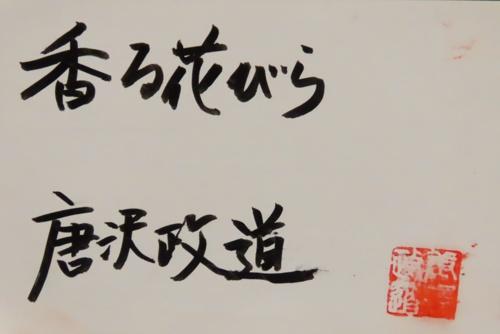 香る花びら
唐沢政道